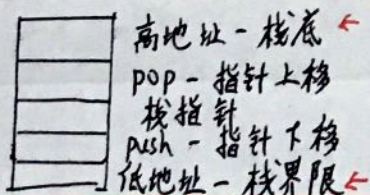 高地址-栈底
pop-指针上移
栈指针
push-指针下移
低地址-栈界限